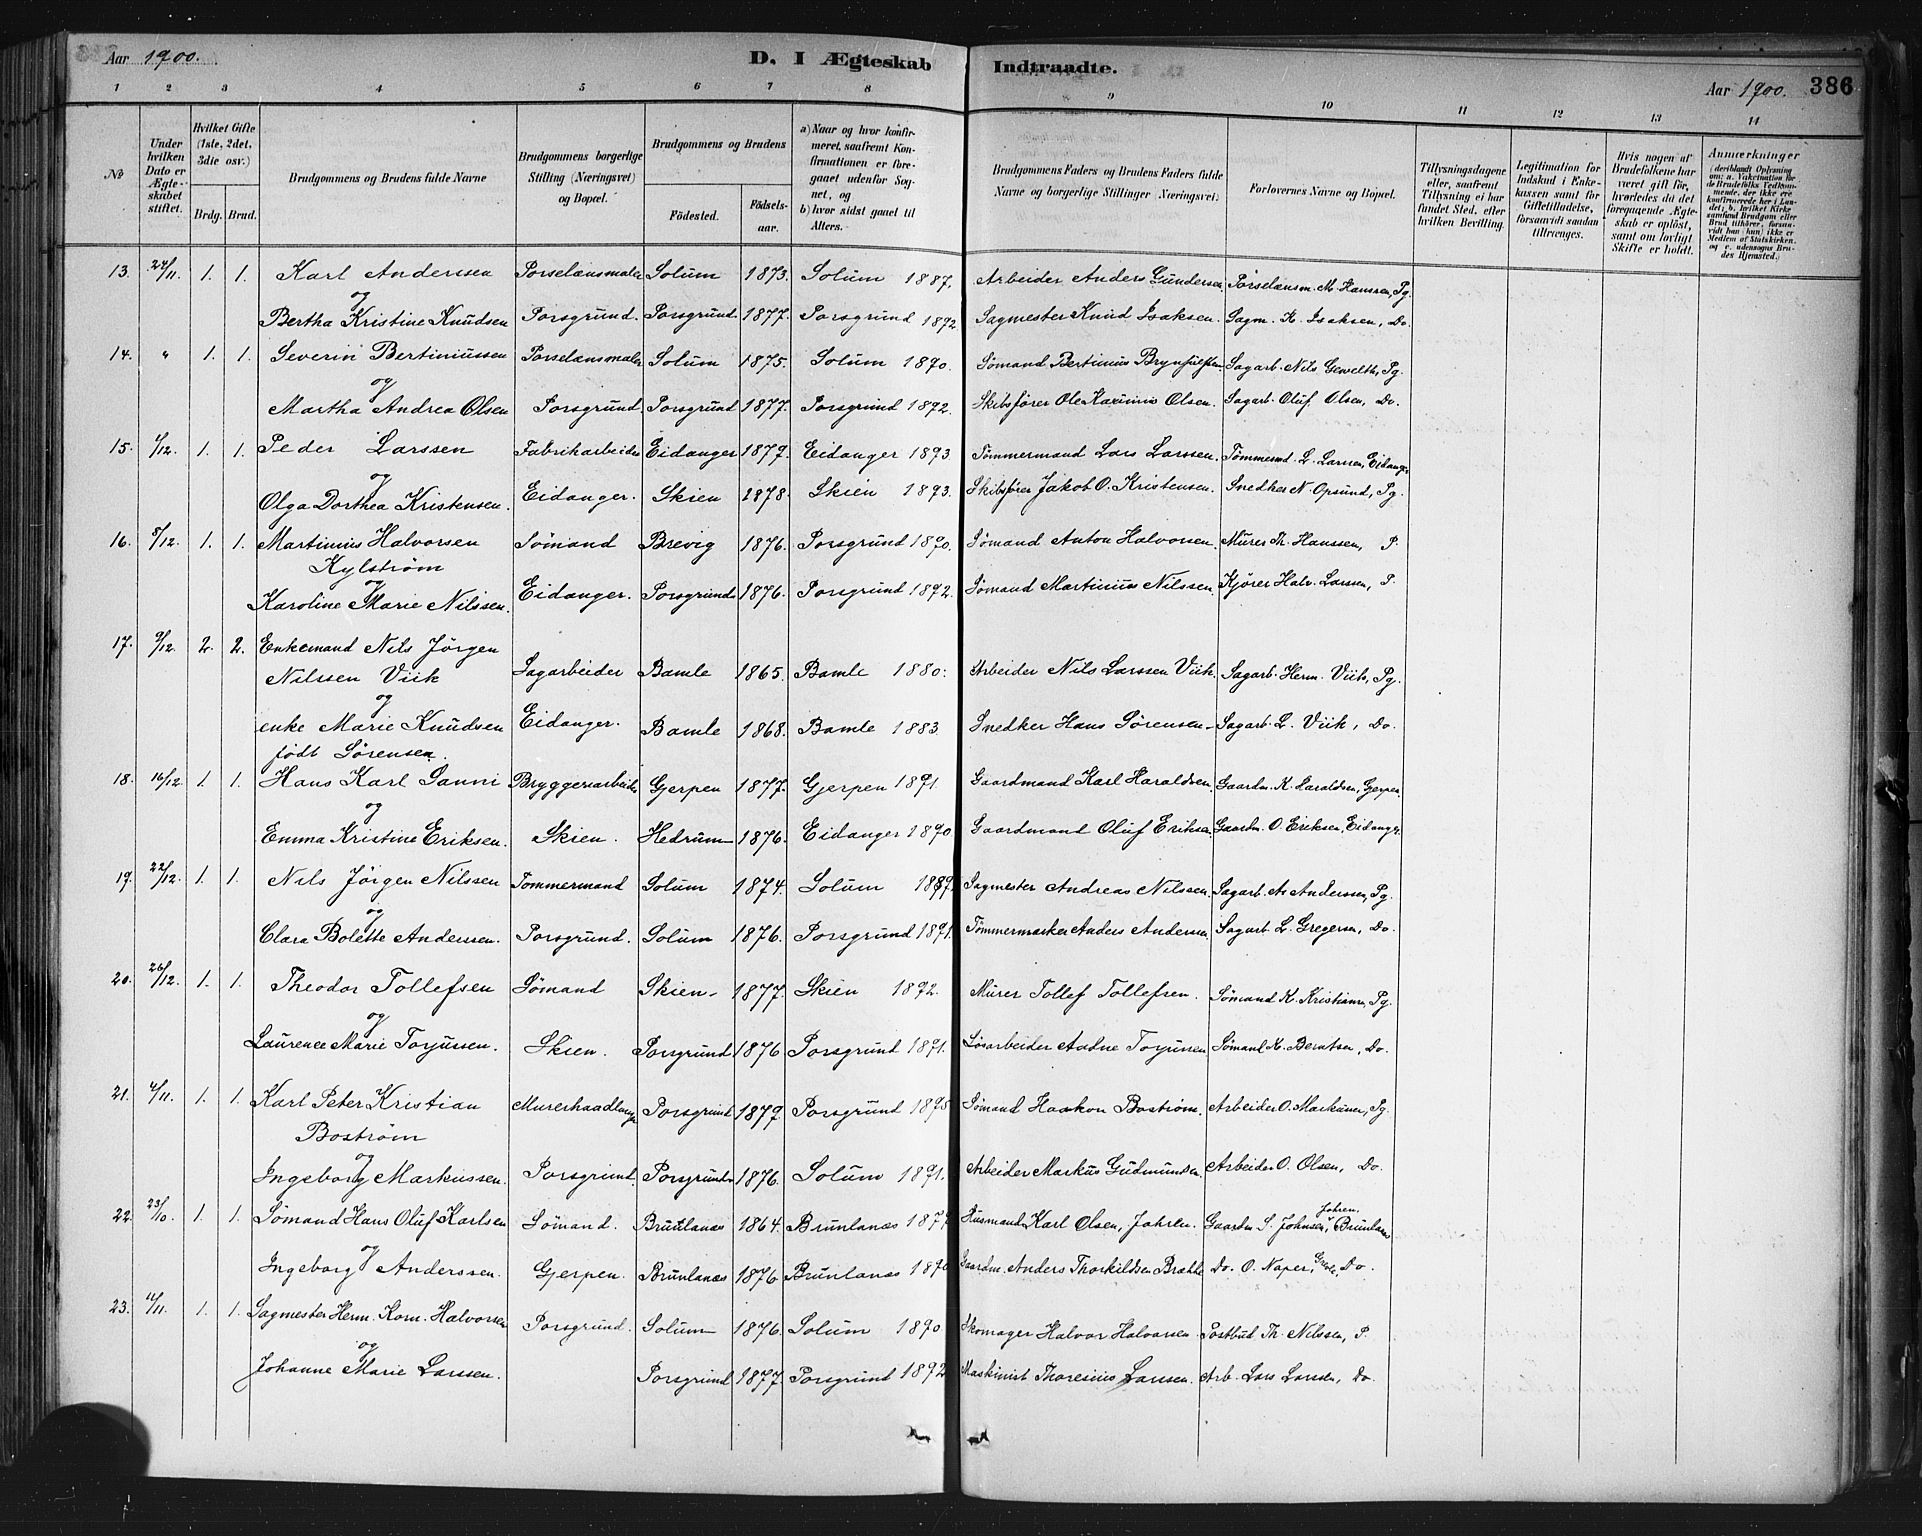 Aar 1900. D. I Ægteskab Indtraadte. Aar 1900. 386
1 2 3 4 5 6 7 8 9 10 11 12 13 14
No
Under hvilken Dato er Ægteskabet stiftet.
Hvilket Gifte (1ste, 2det, 3die osv.)
Brdg. Brud.
Brudgommens og Brudens fulde Navne
Brudgommens borgerlige Stilling (Næringsvei) og Bopæl.
Brudgommens og Brudens
Födested. Födselsaar.
a) Naar og hvor konfirmeret, saafremt Konfirmationen er foregaaet udenfor Sognet, og
b) hvor sidst gaaet til Alters.
Brudgommens Faders og Brudens Faders fulde Navne og borgerlige Stillinger (Næringsvei).
Forlovernes Navne og Bopæl.
Tillysningsdagene eller, saafremt Tillysning ei har fundet Sted, efter hvilken Bevilling.
Legitimation for Indskud i Enkekassen samt for Giftetilladelse, forsaavidt saadan tiltrænges.
Hvis nogen af Brudefolkene har været gift för, hvorledes da det foregaaende Ægteskab er oplöst, samt om lovligt Skifte er holdt.
Anmærkninger (deriblandt Oplysning om: a. Vakcination for de Brudefolks Vedkommende, der ikke ere konfirmerede her i Landet; b. hvilket Kirkesamfund Brudgom eller Brud tilhörer, forsavidt han (hun) ikke er Medlem af Statskirken, og c. udensogns Brudes Hjemsted.)
13. 24/11. 1. 1. Karl Andersen Porselænsmaler Solum 1873. Solum 1887. Arbeider Anders Gundersen. Porselænsm. M. Hanssen, Pg.
og
Bertha Kristine Knudsen Porsgrund. Porsgrund. 1877. Porsgrund 1892 Sagmester Knud Isaksen. Sagm. K. Isaksen, Do.
14. " 1. 1. Severin Bertiniussen Porselænsmaler Solum 1875. Solum 1890. Sømand Bertinius Brynjulfsen Sagarb. Nils Gewelth, Pg.
og
Martha Andrea Olsen Porsgrund. Porsgrund 1877. Porsgrund 1892. Skibsfører Ole Olsen. Sagarb. Oluf Olsen, Do.
15. /12. 1. 1. Peder Larssen Fabrikarbeider Eidanger 1879. Eidanger 1893. Tømmermand Lars Larssen. Tømmermd. L. Larssen, Eidanger
og
Olga Dorthea Kristensen. Eidanger. Skien 1878. Skien 1893. Skibsfører Jakob O. Kristensen. Snedker N. Opsund, Pg.
16. 8/12. 1. 1. Martinius Halvorsen Sømand Brevig 1876. Porsgrund 1890. Sømand Anton Halvorsen. Murer Th. Hanssen, P.
Kylstrøm
og
Karoline Marie Nilssen. Eidanger. Porsgrund. 1876. Porsgrund 1892. Sømand Martinius Nilssen. Kjører Halv. Larssen, P.
17. 9/12. 2. 2. Enkemand Nils Jørgen
Nilssen Viik Sagarbeider Bamle 1865. Bamle 1880. Arbeider Nils Larssen Viik. Sagarb. Herm. Viik, Pg.
og
enke Marie Knudsen Eidanger. Bamle 1868. Bamle 1883. Snedker Hans Sørensen Sagarb. L. Viik, Do.
født Sørensen.
18. 16/12. 1. 1. Hans Karl Sanni Bryggeriarbeider Gjerpen 1877. Gjerpen 1891. Gaardmand Karl Haraldsen. Gaardm. K. Haraldsen, Gjerpen.
og
Emma Kristine Eriksen. Skien. Hedrum 1876. Eidanger 1890. Gaardmand Oluf Eriksen. Gaardm. O. Eriksen, Eidanger
19. 22/12. 1. 1. Nils Jörgen Nilssen Tømmermand Solum 1874. Solum 1889. Sagmester Andreas Nilssen. Sagarb. A. Anderssen, Pg.
og
Clara Bolette Anderssen. Porsgrund. Solum 1876. Porsgrund 1891. Tömmermerker Anders Anderssen. Sagarb. L. Gregersen, Do.
20. 26/12. 1. 1. Theodor Tollefsen Sømand Skien 1877. Skien 1892. Murer Tollef Tollefsen. Sømand K. Kristians., Pg.
og
Laurence Marie Torjussen. Skien. Porsgrund 1876 Porsgrund 1891. Løsarbeider Aadne Torjussen Sømand K. Berntsen, Do.
21. 4/11. 1. 1. Karl Peter Kristian Murerhaandlanger Porsgrund 1879 Porsgrund 1895 Sømand Haakon Bostrøm. Arbeider O. Markussen, Pg.
Bostrøm
og
Ingeborg Markussen. Porsgrund. Porsgrund. 1876. Solum 1891. Arbeider Markus Gudmundsen Arbeider O. Olsen, Do.
22. 23/10. 1. 1. Sømand Hans Oluf Karlsen Sømand. Brunlanæs 1864. Brunlanæs 1879 Husmand Karl Olsen, Jahren. Gaardm. S. Johnsen, Jahren. Brunlanæs
og
Ingeborg Anderssen. Gjerpen. Brunlanæs 1876 Brunlanæs 1890 Gaardm. Anders Thorkildsen Brække Do. O. Naper, Do.
23. /11. 1. 1. Sagmester Herm. Korn. Halvorsen Porsgrund. Solum 1876. Solum 1890. Skomager Halvor Halvorsen. Postbud Th. Nilssen, P.
og
Johanne Marie Larssen. Porsgrund 1877. Porsgrund 1892 Maskinist Thoresius Larssen. Arb. Lars Larssen, Do.